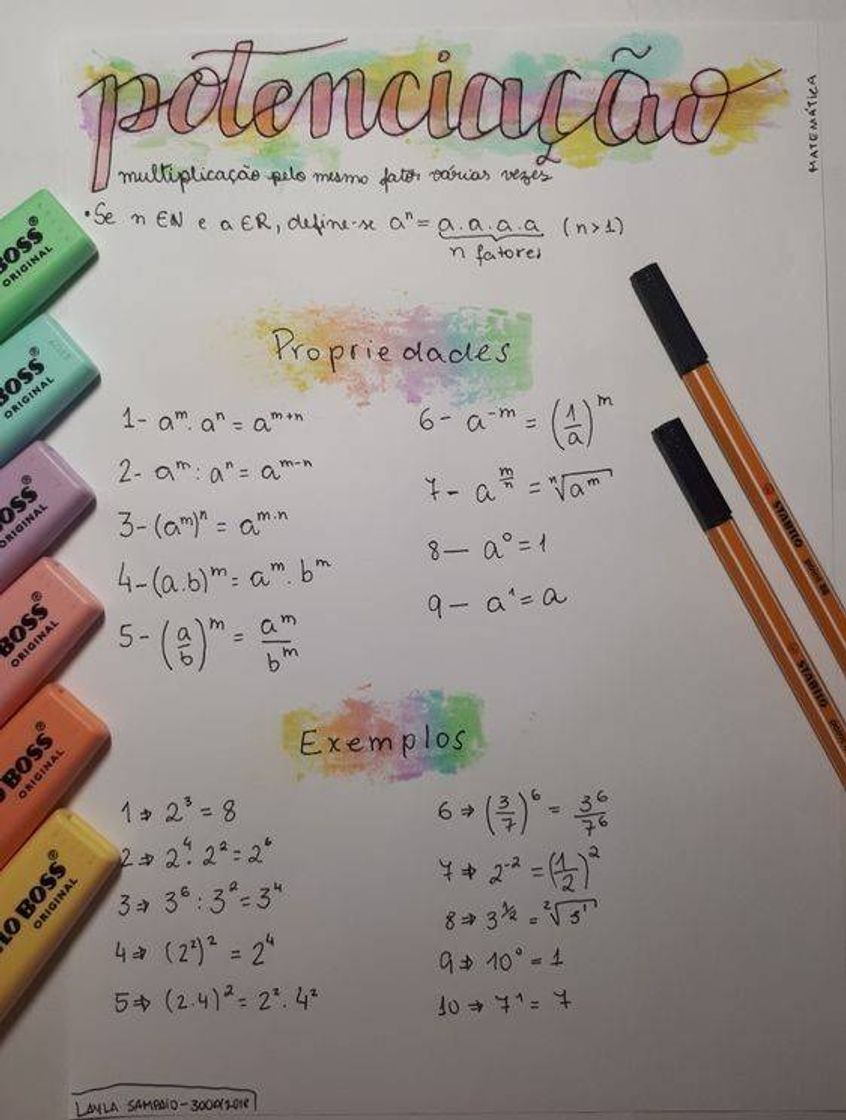 potenciação
MATEMÁTICA
multiplicação pelo mesmo fator várias vezes
•Se n ∈ N e a ∈ R, define-se aⁿ = a.a.a.a (n>1)
n fatores
Propriedades
1- aᵐ. aⁿ = aᵐ⁺ⁿ
2- aᵐ : aⁿ = aᵐ⁻ⁿ
3- (aᵐ)ⁿ = aᵐ·ⁿ
4- (a.b)ᵐ = aᵐ. bᵐ
5- (a/b)ᵐ = aᵐ/bᵐ
6- a⁻ᵐ = (1/a)ᵐ
7- a^(m/n) = ⁿ√aᵐ
8— a⁰ = 1
9— a¹ = a
Exemplos
1⇒ 2³ = 8
2⇒ 2⁴. 2² = 2⁶
3⇒ 3⁶ : 3² = 3⁴
4⇒ (2²)² = 2⁴
5⇒ (2.4)² = 2². 4²
6⇒ (3/7)⁶ = 3⁶/7⁶
7⇒ 2⁻² = (1/2)²
8⇒ 3^(1/2) = ²√3¹
9⇒ 10⁰ = 1
10⇒ 7¹ = 7
BOSS®
ORIGINAL
BOSS®
ORIGINAL
BOSS®
ORIGINAL
BOSS®
ORIGINAL
BOSS®
ORIGINAL
LO BOSS®
ORIGINAL
STABILO
STABILO
LAYLA SAMPAIO-